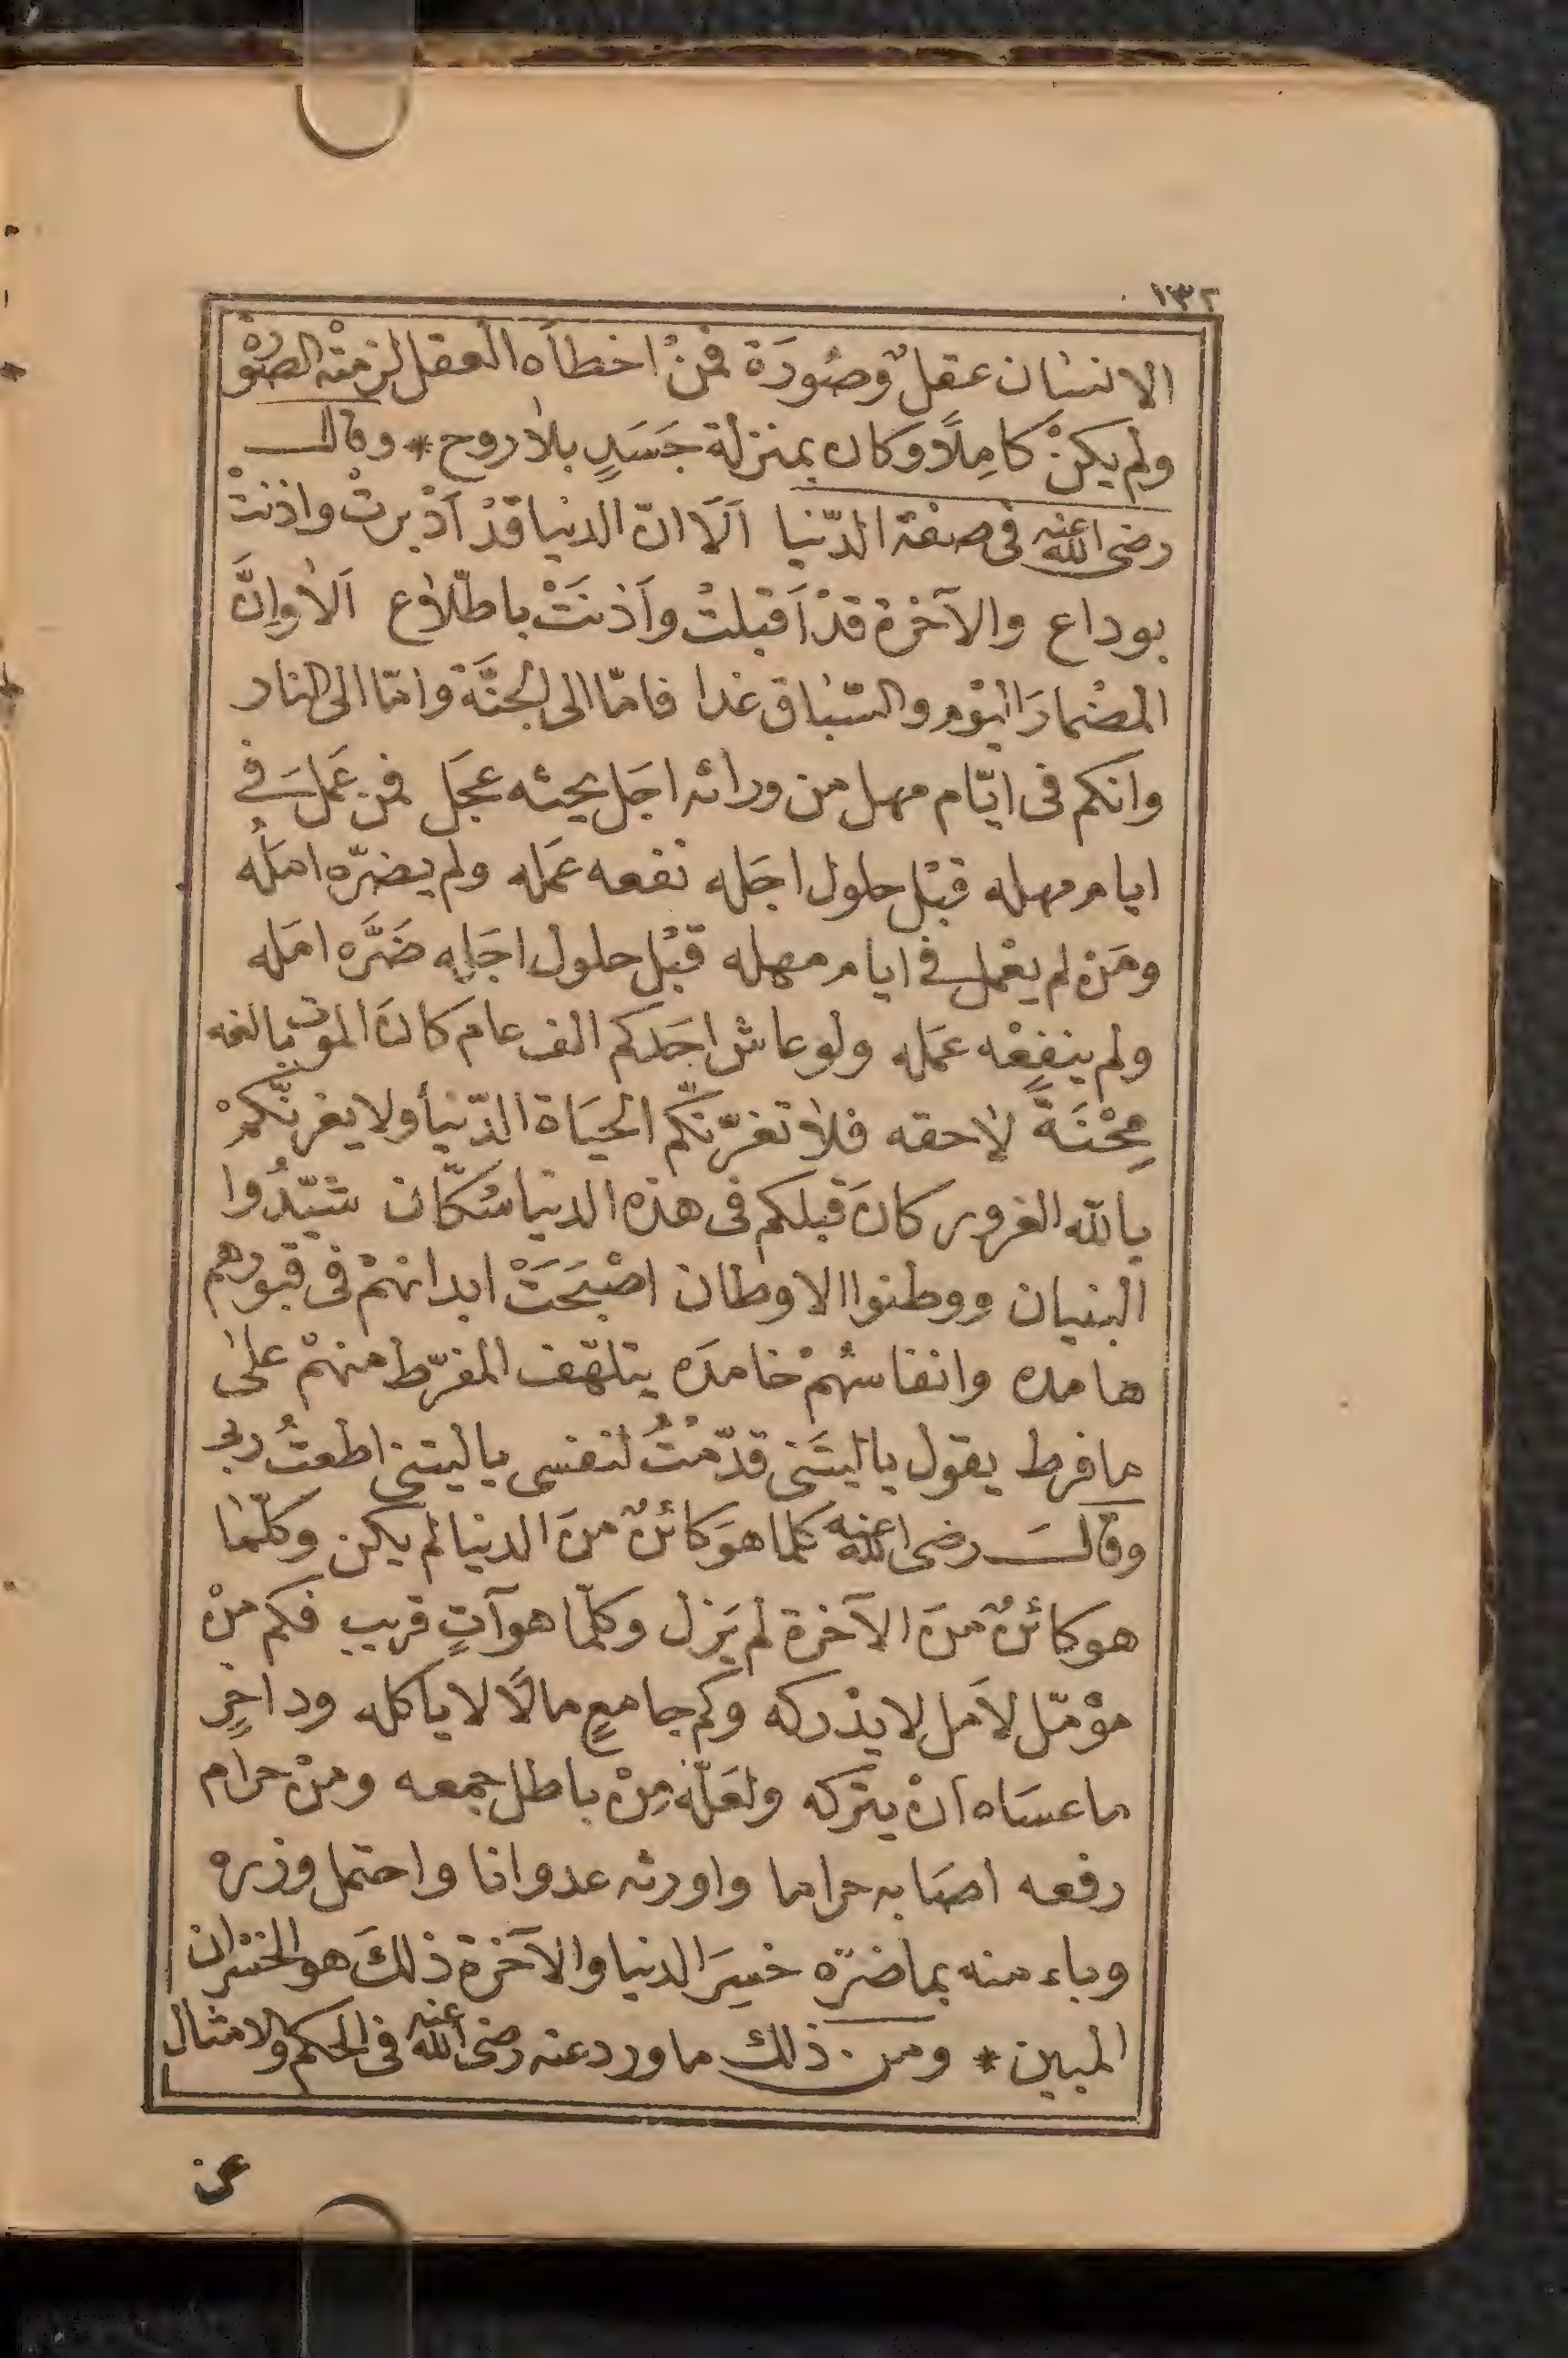 ١٣٢
الانسان عقلٌ وصُورَة فمنْ اخطاَه العقل لزمتْه الصوْرة
ولم يكنْ كامِلًا وكان بمنزلة جَسَدٍ بلا روح * وقال
رضى الله عنه فى صفة الدّنيا اَلَا انّ الدنيا قدْ اَدْبرتْ واذنتْ
بوداع والآخرة قدْ اَقبلتْ واَذنَتْ باطّلاع اَلا واِنَّ
المضْمارَ اليَوْم والسّباق غدا فامّا الى الجنَّة وامّا الى النار
وانكم فى ايّام مهل من ورائه اجَل يحثه عجَل فمن عَملَ فى
ايام مهله قبْل حلول اجَله نفعه عمَله ولم يضرّه امَلُه
ومَنْ لم يعْمل فى ايام مهله قبْل حلول اجَلِه ضَرَّه امَله
ولم ينفعْه عمَله ولو عاش احَدكم الف عام كانَ الموت بالغه
مِحْنَةً لاحقه فلا تغرّنّكم الحيَاة الدّنيا ولا يغرنّكمْ
بالله الغرور كانَ قبلكم فى هذه الدنيا سُكّان شَيّدُوا
البنيان ووطنوا الاوطان اصْبَحَتْ ابدانهمْ فى قبورهم
هامده وانفاسُهمْ خامدَه يتلهّف المفرّط منهمْ على
ما فرط يقول ياليتَنى قدّمْتُ لنفسى ياليتنى اطعتُ ربى
وقالَ رضى الله عنه كلما هوَ كائنٌ منَ الدنيا لم يكن وكلّما
هو كائنٌ منَ الآخرة لم يَزل وكلّما هو آتٍ قريب فكم منْ
مؤمّل لاَمل لا يدْركه وكم جامعٍ مالًا لا ياكله وداخرٍ
ما عسَاه انْ يتركه ولعَلّه مِنْ باطل جمعه ومنْ حرام
رفعه اصَابه حراما واورثه عدوانا واحتمل وزره
وباء منه بما ضرّه خسِرَ الدنيا والآخرة ذلكَ هو الخسْران
المبين * ومن ذلك ما ورد عنه رضى الله عنه فى الحكم والامثال
عن